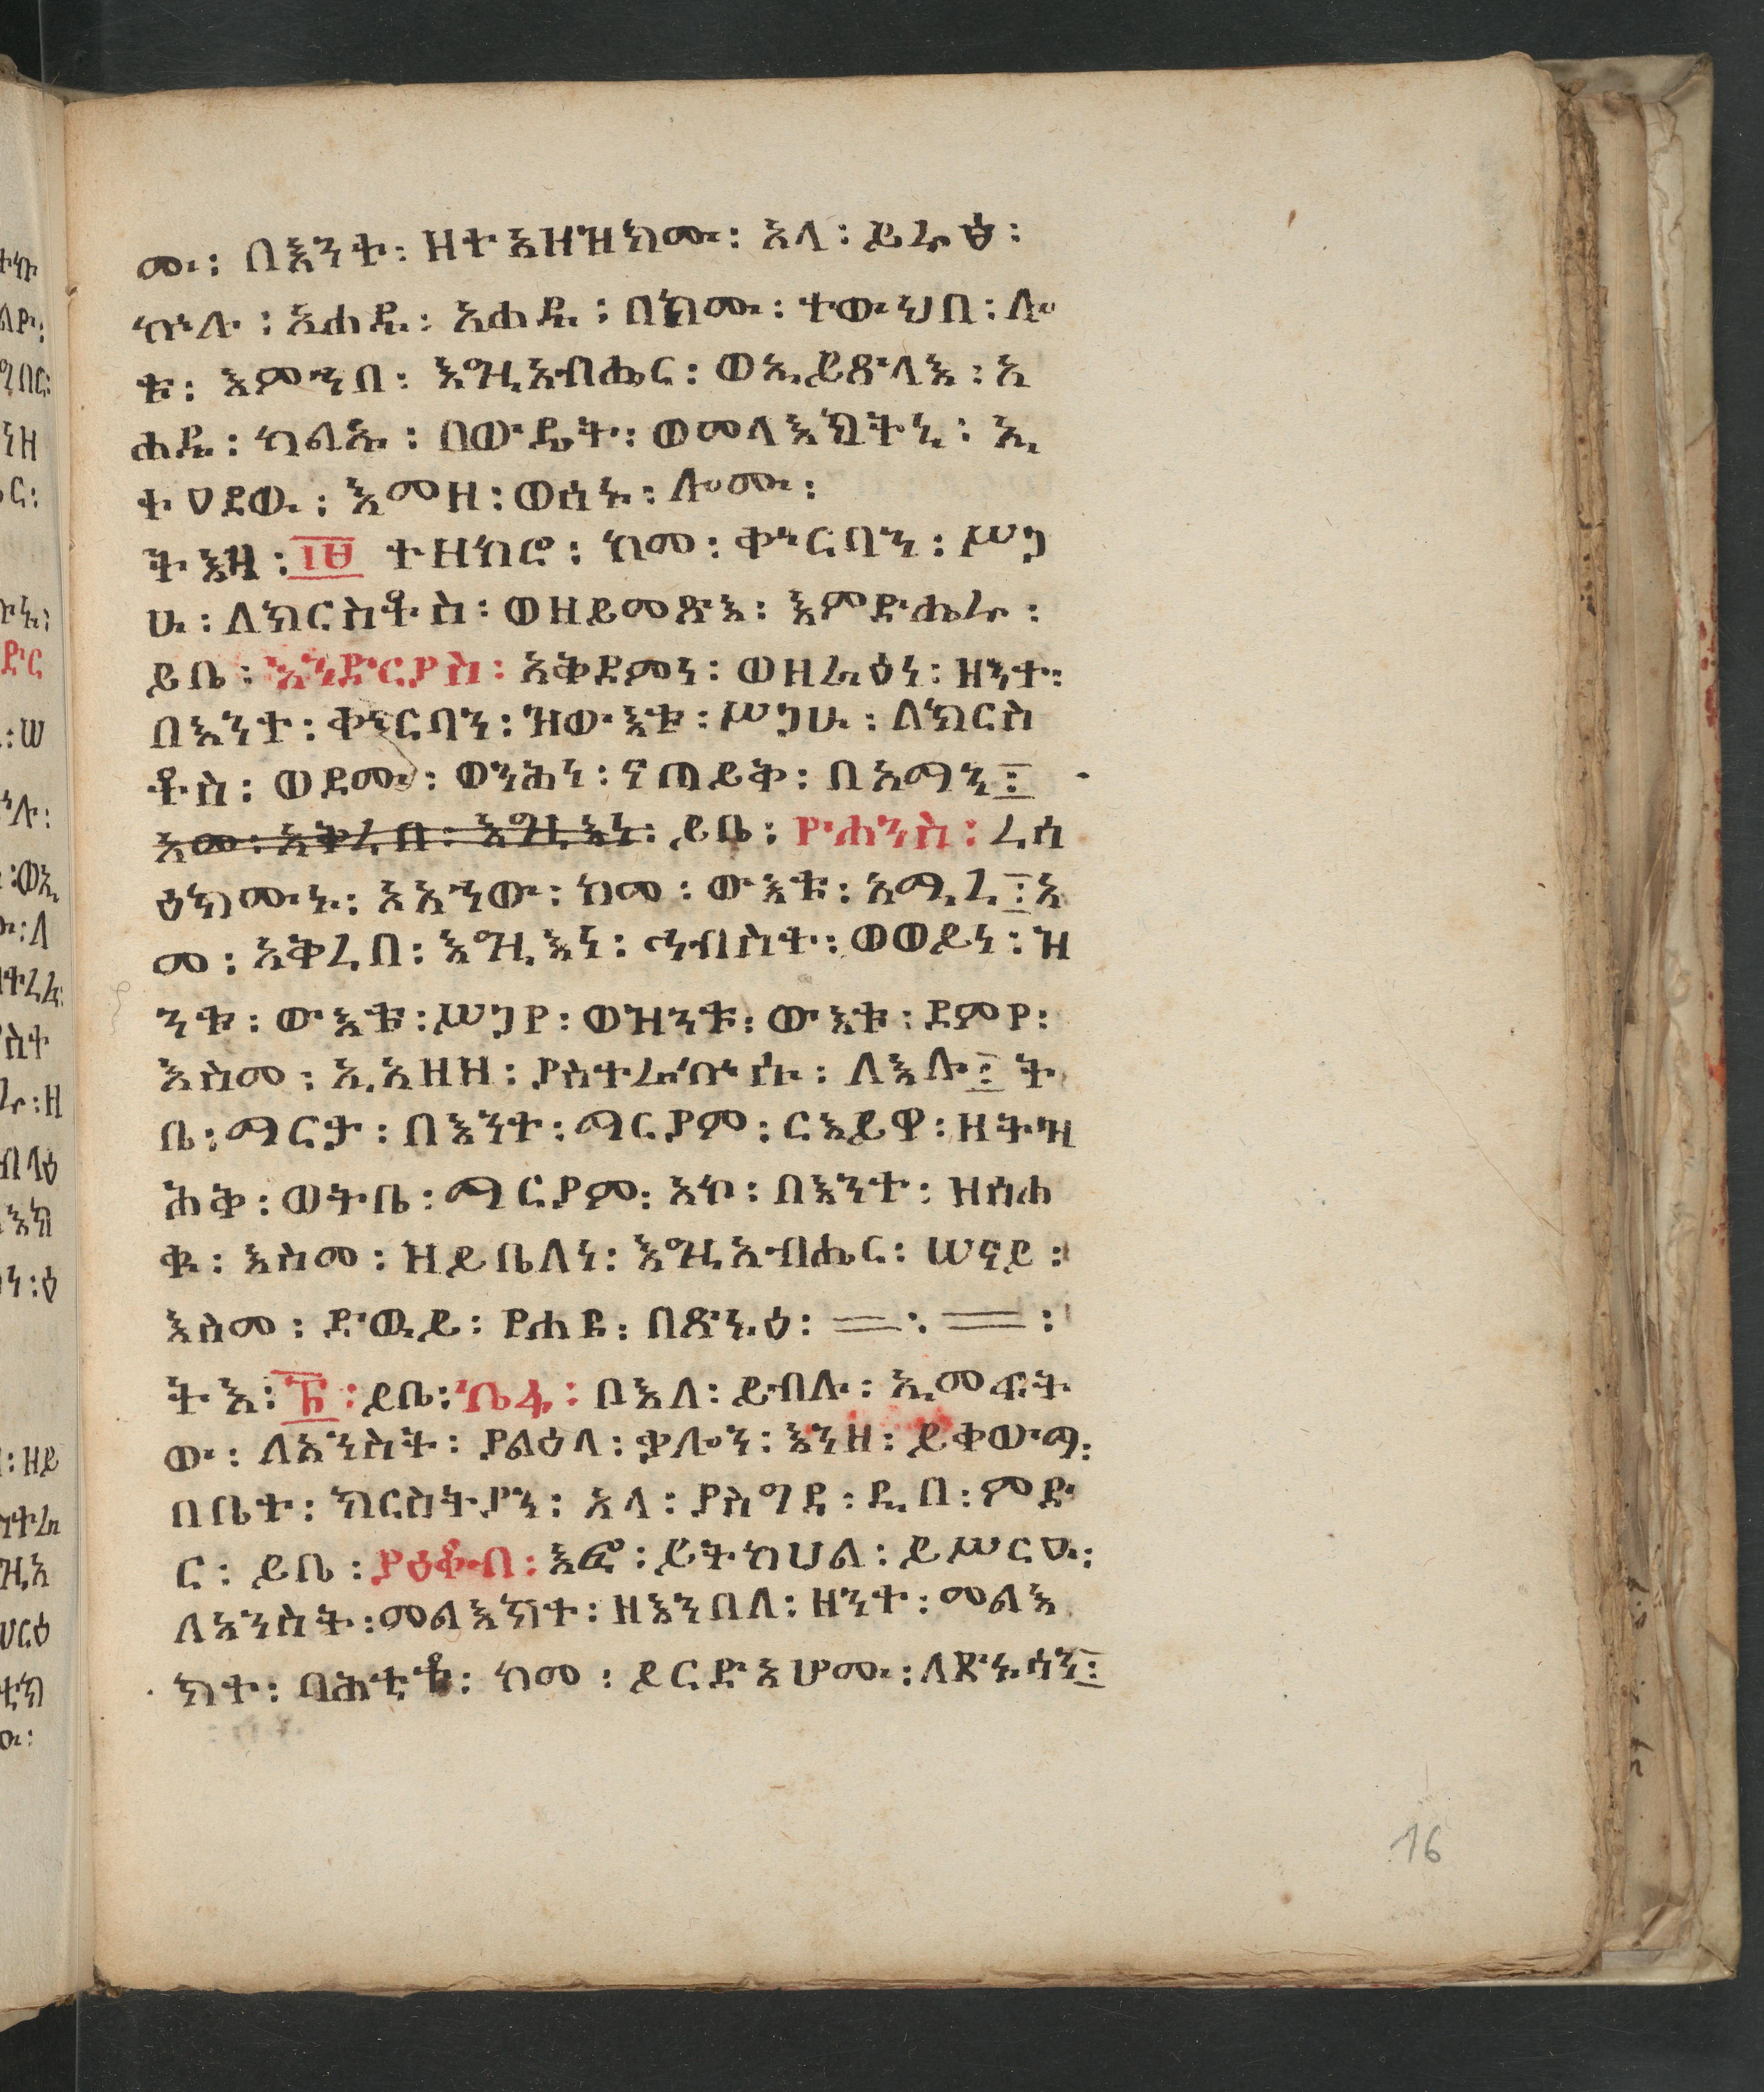 ሙ፡ በእንተ፡ ዘተአዘዝክሙ፡ አላ፡ ይሬዕ፡
ኵሉ፡ አሐዱ፡ አሐዱ፡ በከሙ፡ ተውህበ፡ ሎ
ቱ፡ እምኀበ፡ እግዚአብሔር፡ ወኢይጸላእ፡ አ
ሐዱ፡ ካልኡ፡ በውዴት፡ ወመላእክትኒ፡ ኢ
ተዐደዉ፡ እመዘ፡ ወሰኑ፡ ሎሙ፡
ትእዛ፡ ፲፱ ተዘከሮ፡ ከመ፡ ቍርባን፡ ሥጋ
ሁ፡ ለክርስቶስ፡ ወዘይመጽእ፡ እምድኅሬሁ፡
ይቤ፡ እንድርያስ፡ አቅደመነ፡ ወዘራዕነ፡ ዘንተ፡
በእንተ፡ ቍርባን፡ ዝውእቱ፡ ሥጋሁ፡ ለክርስ
ቶስ፡ ወደሙ፡ ወንሕነ፡ ኖጠይቅ፡ በአማን፤
አመ፡ አቅረበ፡ እግዚእነ፡ ይቤ፡ ዮሐንስ፡ ረሰ
ዕክሙኑ፡ አአኀው፡ ከመ፡ ውእቱ፡ አሚረ፤ አ
መ፡ አቅረበ፡ እግዚእነ፡ ኅብስተ፡ ወወይነ፡ ዝ
ንቱ፡ ውእቱ፡ ሥጋየ፡ ወዝንቱ፡ ውእቱ፡ ደምየ፡
እስመ፡ ኢአዘዘ፡ ያስተራኵሱ፡ ለእሎ፤ ት
ቤ፡ ማርታ፡ በእንተ፡ ማርያም፡ ርእይዋ፡ ዘትሥ
ሕቅ፡ ወትቤ፡ ማርያም፡ አኮ፡ በእንተ፡ ዝሰሐ
ቁ፡ እስመ፡ ዝይቤለነ፡ እግዚአብሔር፡ ሠናይ፡
እስመ፡ ድዉይ፡ የሐዩ፡ በጽኑዕ፡ ፡
ትእ፡ ፳፡ ይቤ፡ ኬፋ፡ በእለ፡ ይብሉ፡ ኢመፍት
ው፡ ለአንስት፡ ያልዕላ፡ ቃሎን፡ እንዘ፡ ይቀውማ፡
በቤተ፡ ክርስትያን፡ አላ፡ ያስግዳ፡ ዲበ፡ ምድ
ር፡ ይቤ፡ ያዕቆብ፡ እፎ፡ ይትከሀል፡ ይሥርዑ፡
ለአንስት፡ መልእክተ፡ ዘእንበለ፡ ዘንተ፡ መልእ
ክተ፡ ባሕቲቱ፡ ከመ፡ ይርድእሆሙ፡ ለጽኑሳን፤
16